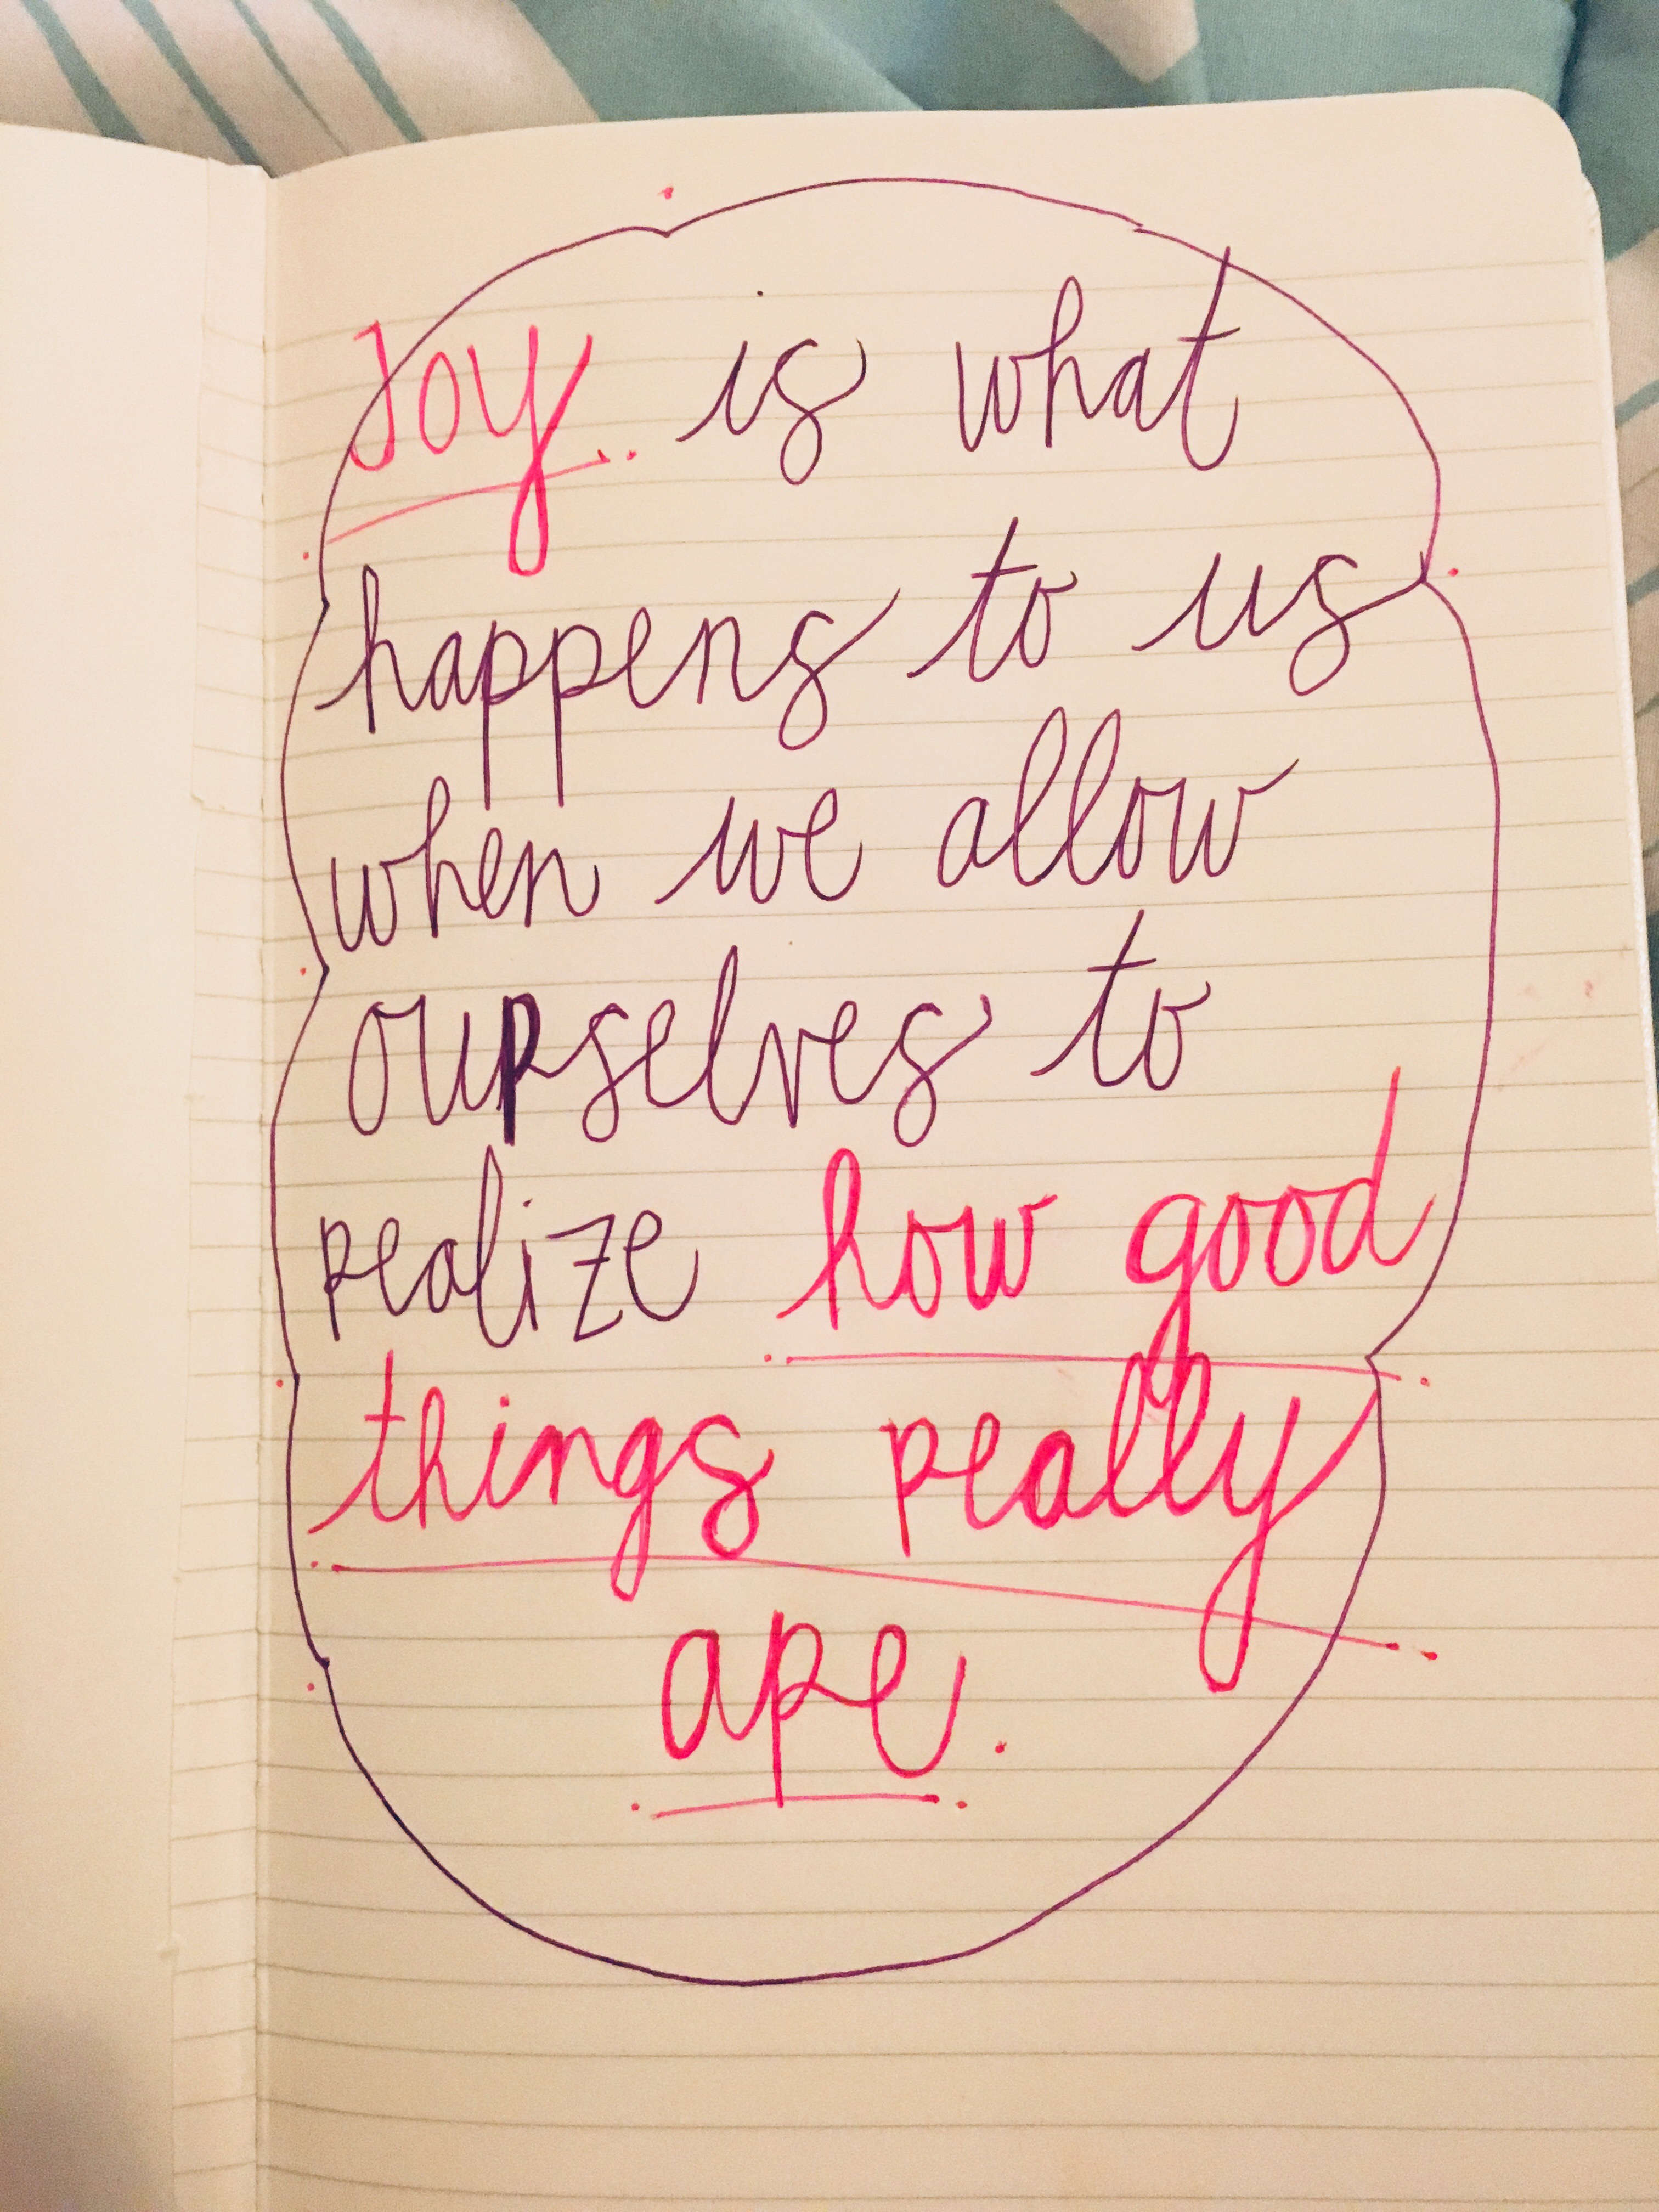 Joy is what
happens to us
when we allow
ourselves to
realize how good
things really
are.